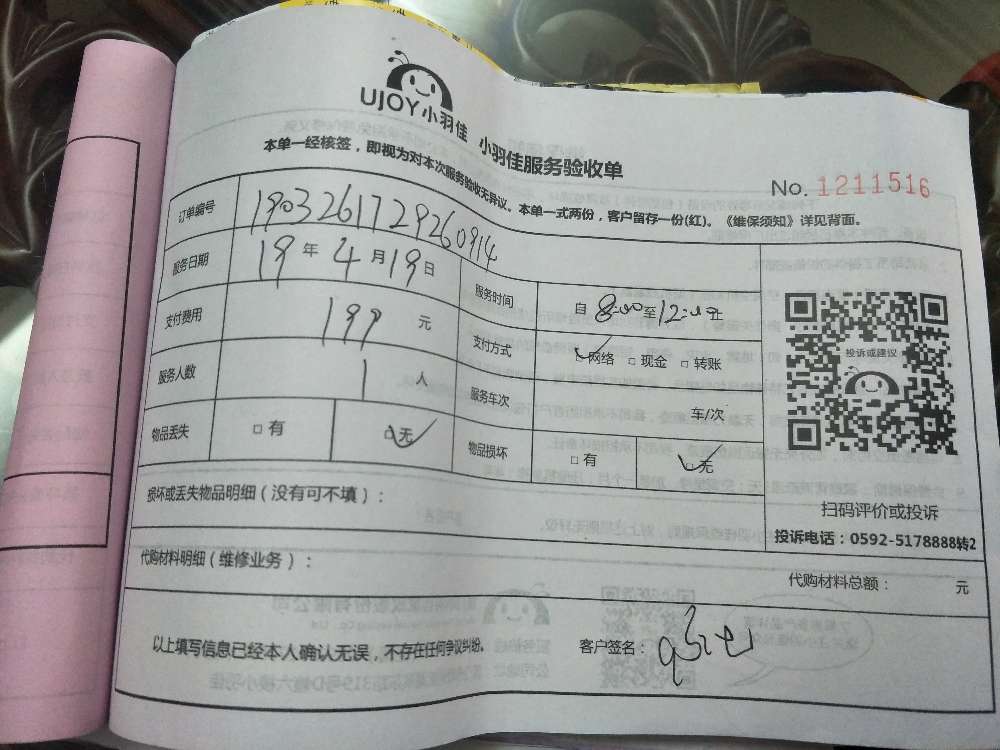 UJOY小羽佳 小羽佳服务验收单
本单一经核签，即视为对本次服务验收无异议。本单一式两份，客户留存一份(红)。《维保须知》详见背面。
No. 1211516
订单编号 1903261729260914
服务日期 19年4月19日 服务时间 自8:00至12:00止
支付费用 199元 支付方式 □网络 □现金 □转账
服务人数 1人 服务车次 车/次
物品丢失 □有 □无 物品损坏 □有 □无
投诉或建议
扫码评价或投诉
投诉电话：0592-5178888转2
损坏或丢失物品明细（没有可不填）：
代购材料明细（维修业务）：
代购材料总额： 元
以上填写信息已经本人确认无误，不存在任何争议纠纷。
客户签名：